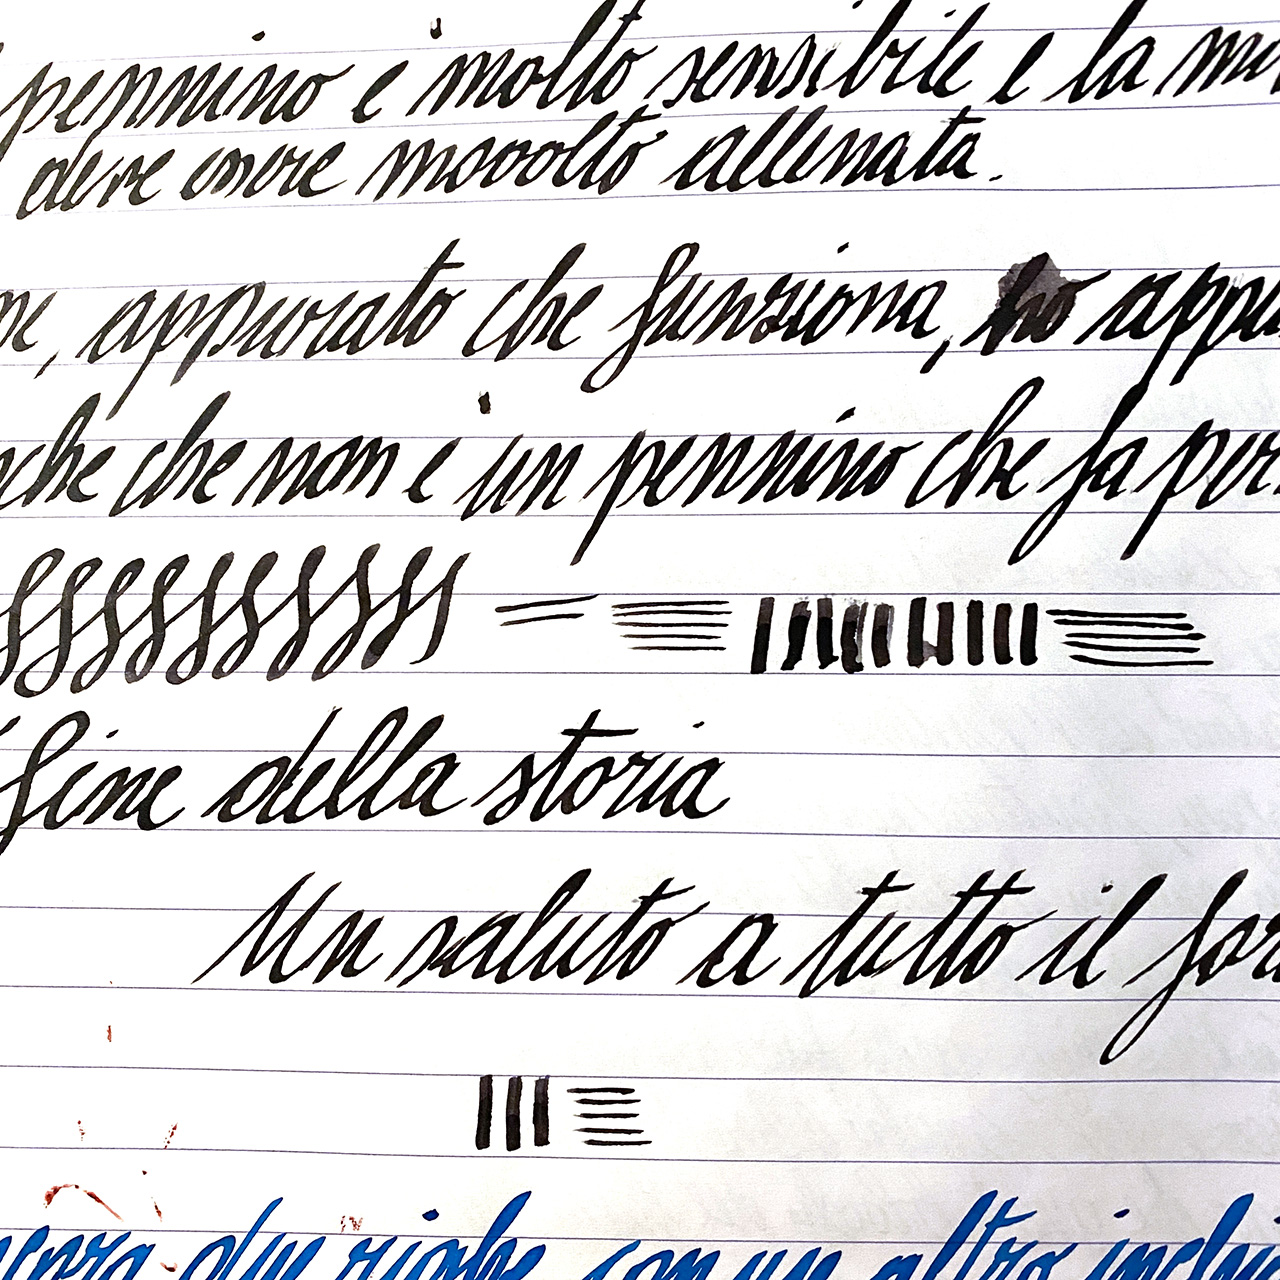 pennino è molto sensibile e la
deve essere mooolto allenata.
appurato che funziona, ho
che non è un pennino che fa
fine della storia
Un saluto a tutto il
due righe con un altro